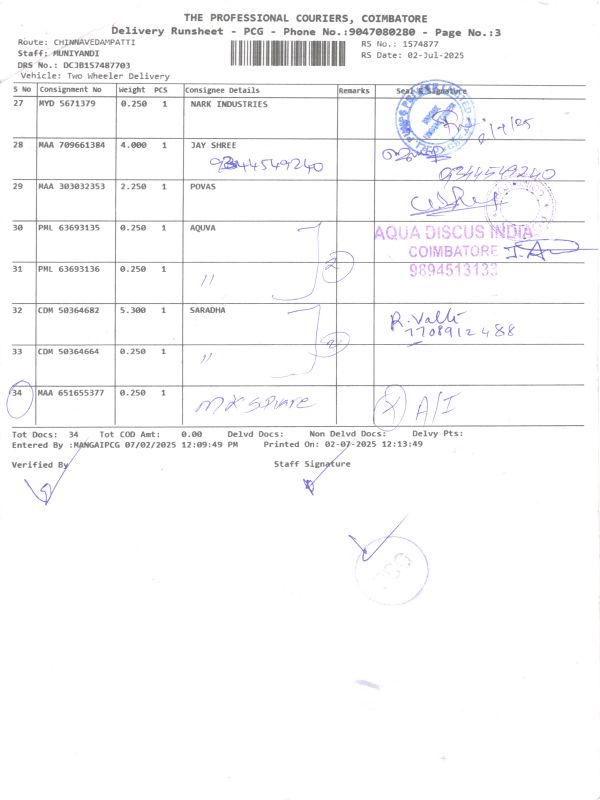 THE PROFESSIONAL COURIERS, COIMBATORE
Delivery Runsheet - PCG - Phone No.:9047080280 - Page No.:3
Route: CHINNAVEDAMPATTI
RS No.: 1574877
Staff: MUNIYANDI
RS Date: 02-Jul-2025
DRS No.: DCJB157487703
Vehicle: Two Wheeler Delivery
S No Consignment No Weight PCS Consignee Details Remarks Seal & Signature
27 MYD 5671379 0.250 1 NARK INDUSTRIES
28 MAA 709661384 4.000 1 JAY SHREE
9344549240 9344549240
29 MAA 303032353 2.250 1 POVAS
30 PML 63693135 0.250 1 AQUVA
AQUA DISCUS INDIA
COIMBATORE
9894513133
2
31 PML 63693136 0.250 1 "
32 CDM 50364682 5.300 1 SARADHA
R. Valli
7708912488
2
33 CDM 50364664 0.250 1 "
34 MAA 651655377 0.250 1 MK square X A/I
Tot Docs: 34 Tot COD Amt: 0.00 Delvd Docs: Non Delvd Docs: Delvy Pts:
Entered By :MANGAIPCG 07/02/2025 12:09:49 PM Printed On: 02-07-2025 12:13:49
Verified By Staff Signature